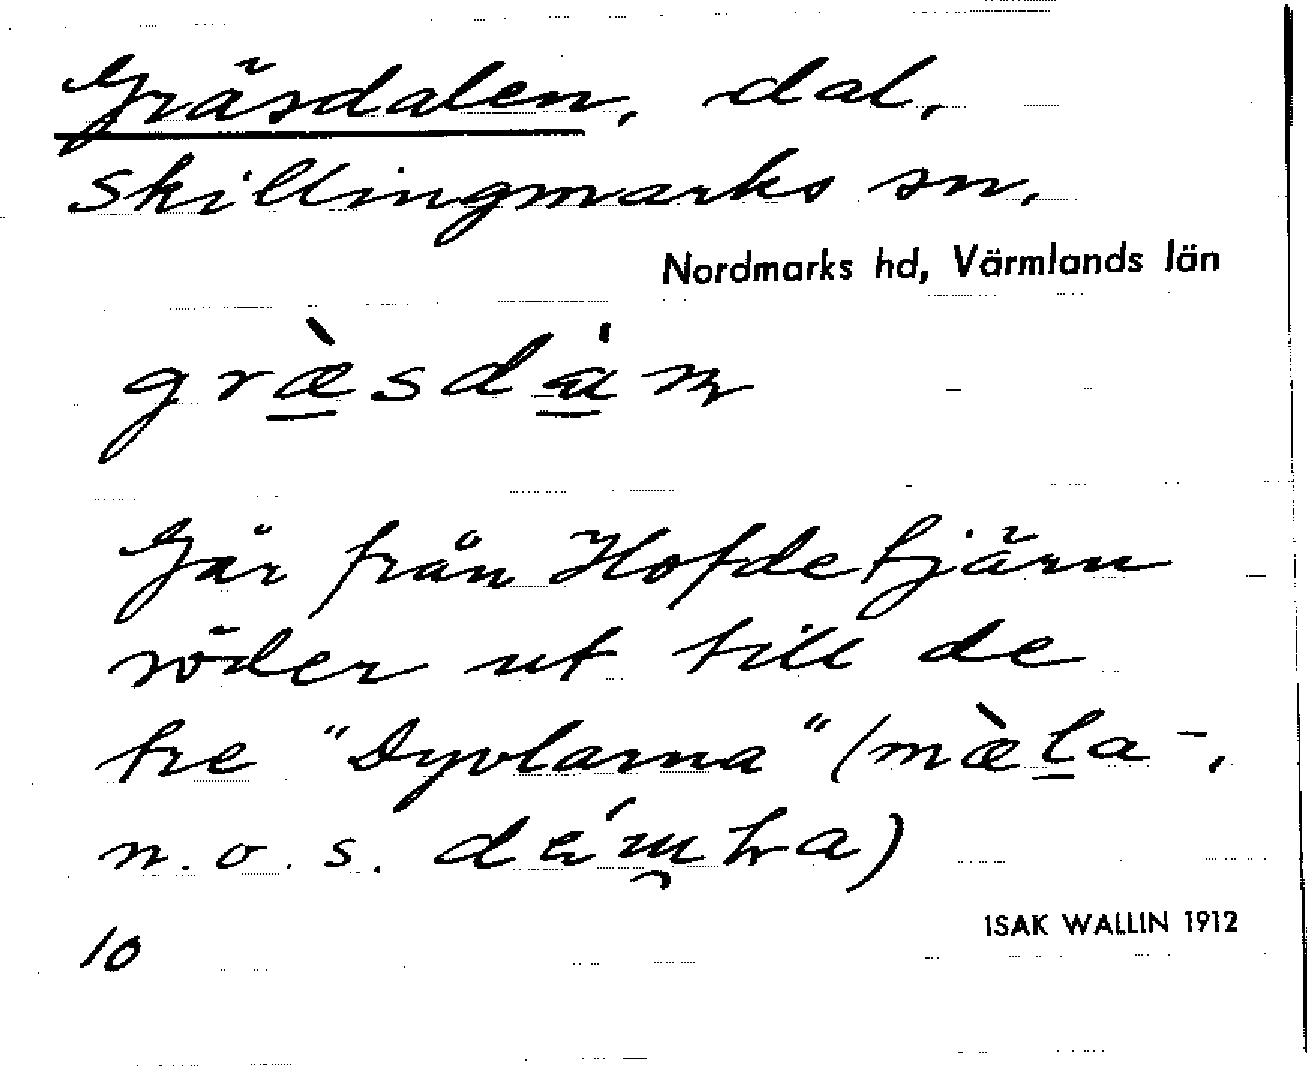 Gräsdalen, dal,
Skillingmarks sn.
Nordmarks hd, Värmlands län
græ̀sdán
Går från Hofdetjärn
söder ut till de
tre "Dyvlarna" (mæ̀la-,
n. o. s.
10
ISAK WALLIN 1912